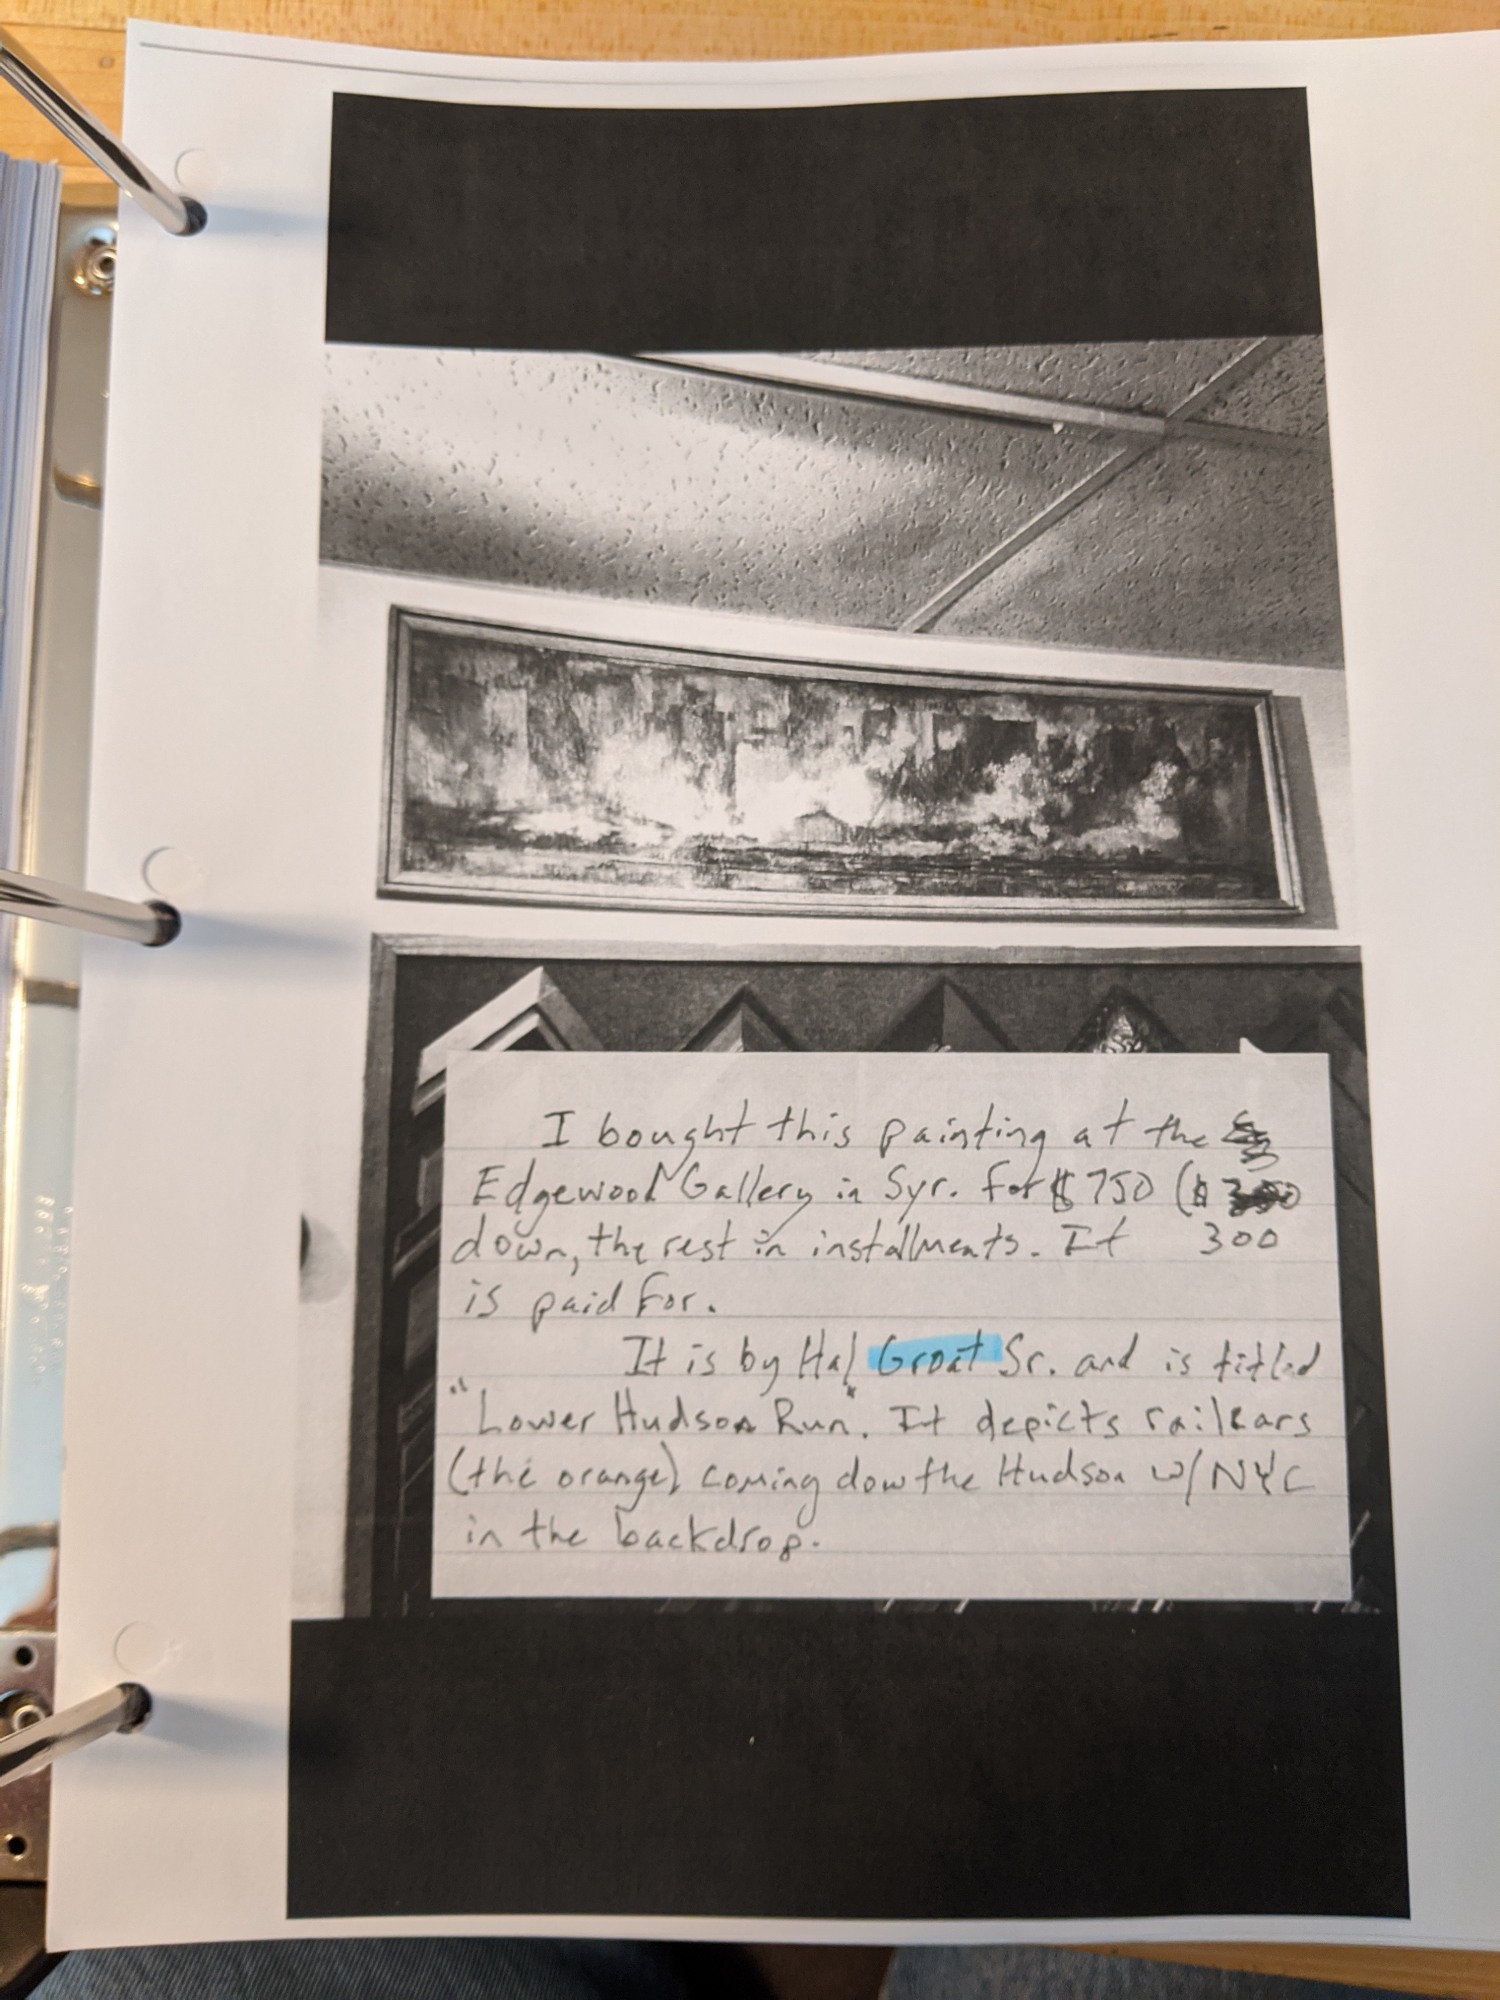 I bought this painting at the
Edgewood Gallery in Syr. for $750 ($
down, the rest in installments. It 300
is paid for.
It is by Hal Groat Sr. and is titled
"Lower Hudson Run". It depicts railcars
(the orange) coming dow the Hudson w/ NYC
in the backdrop.